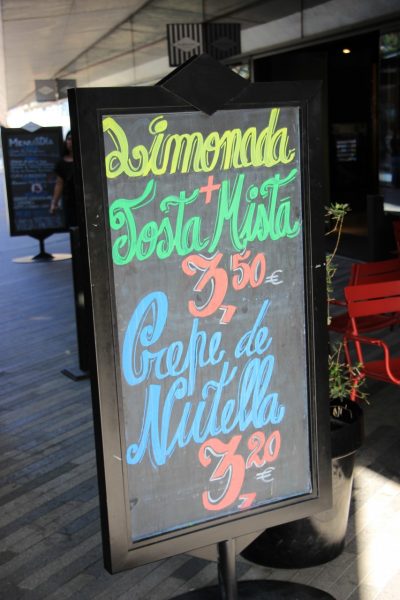 Limonada
+
Tosta Mista
3,50 €
Crepe de
Nutella
3,20 €